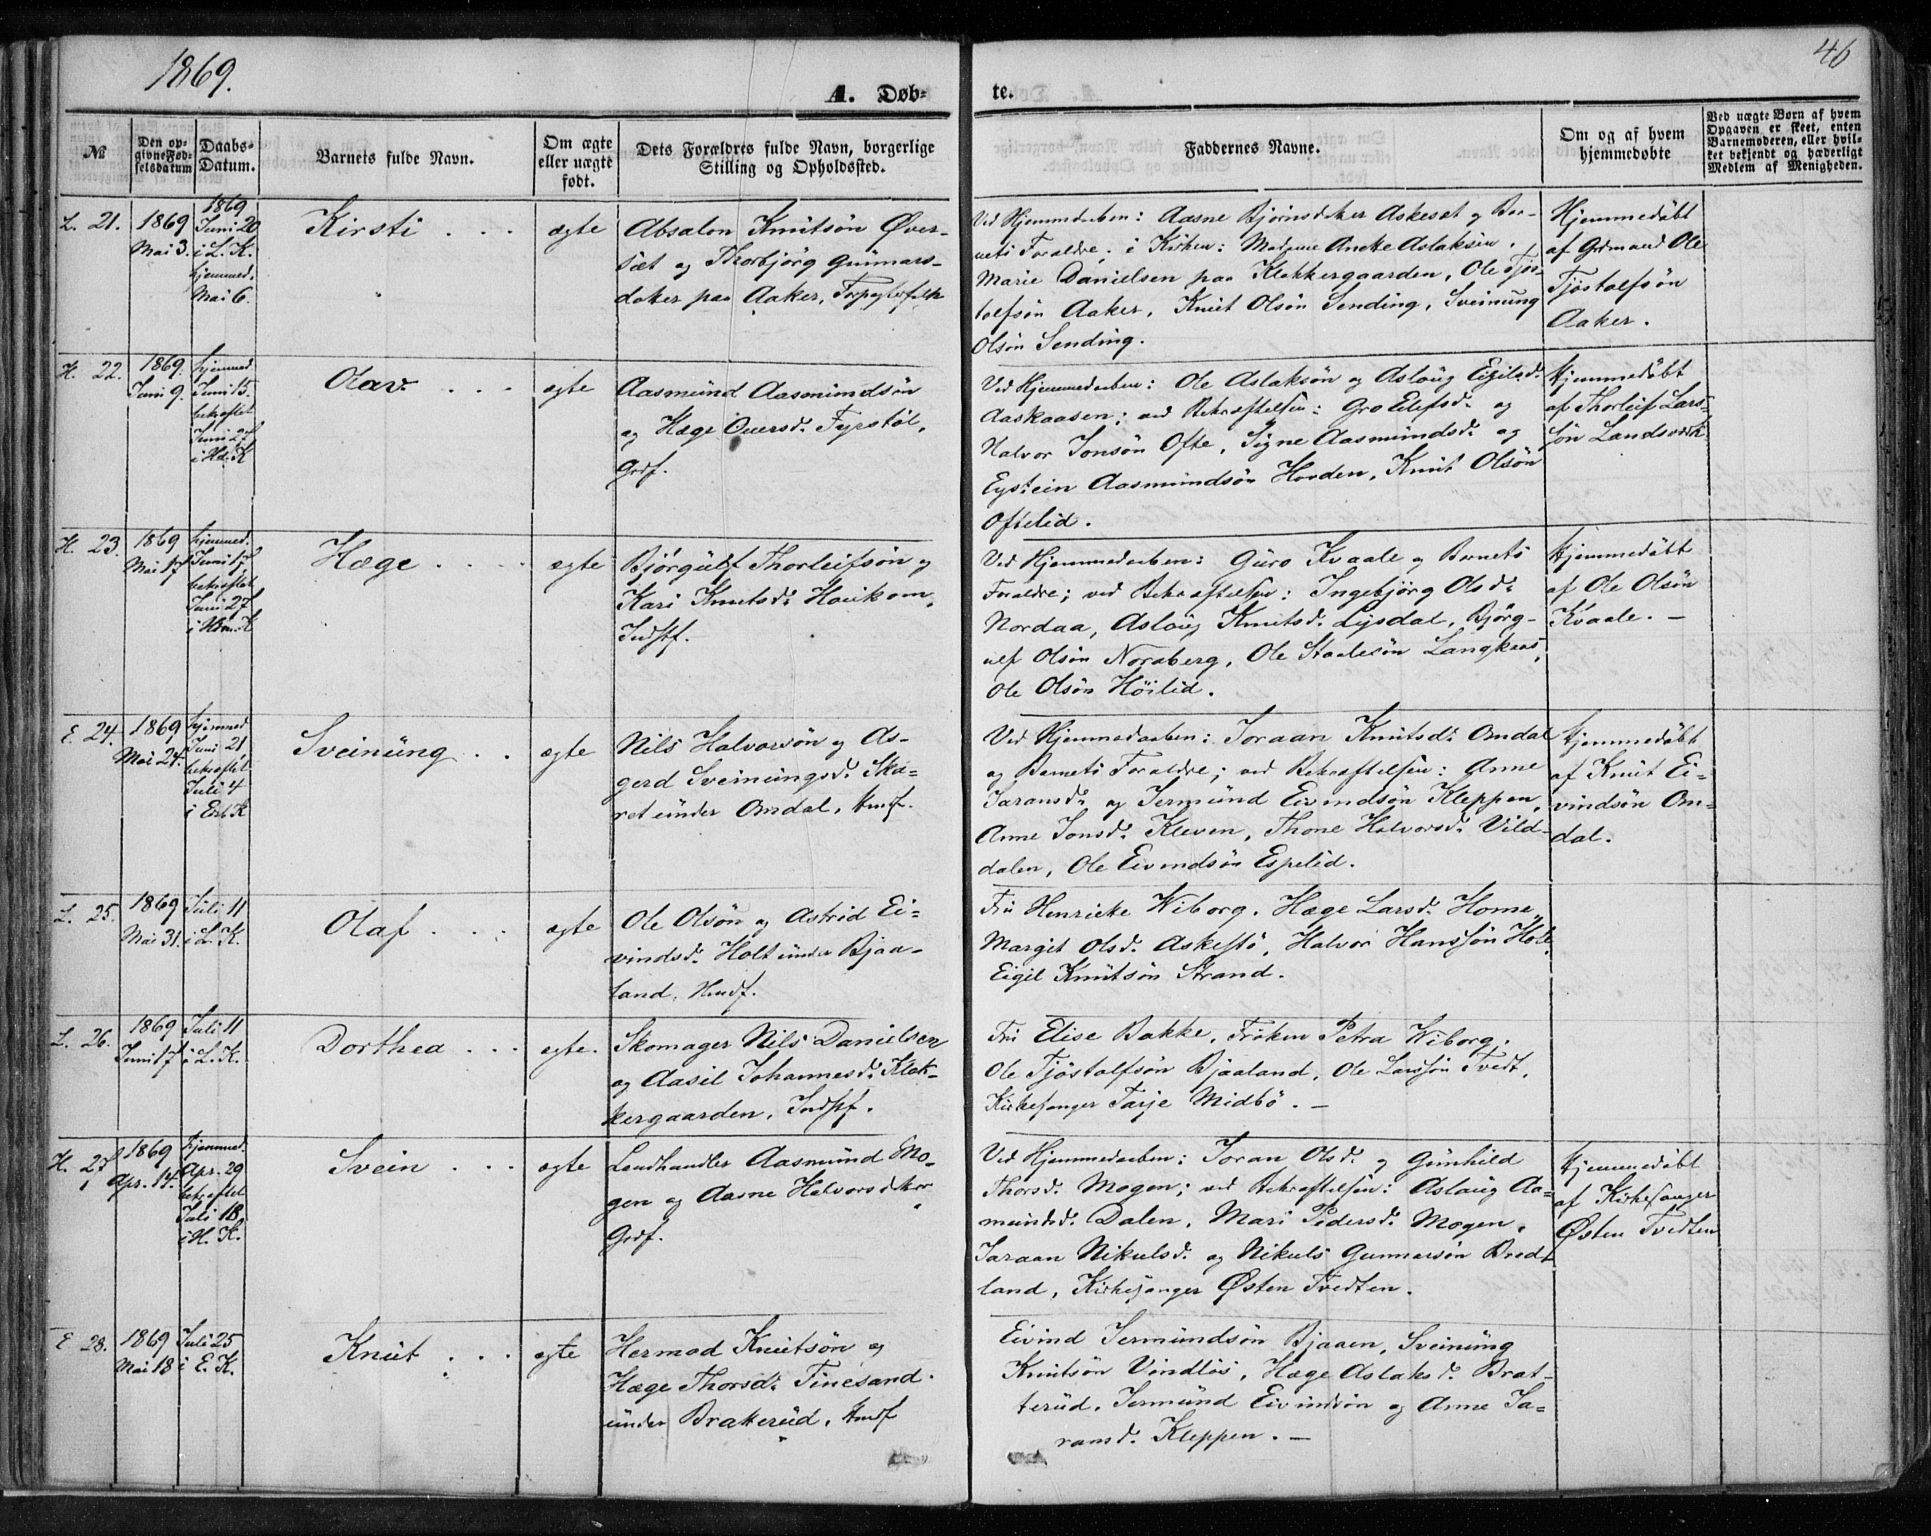 1869.
46
A. Døb-
te.
№
Den op-
givne Fød-
selsdatum
Daabs-
Datum.
Barnets fulde Navn.
Om ægte
eller uægte
født.
Dets Forældres fulde Navn, borgerlige
Stilling og Opholdssted.
Faddernes Navne.
Om og af hvem
hjemmedøbte
Ved uægte Børn af hvem
Opgaven er skeet, enten
Barnemoderen, eller hvil-
ket bekjendt og hæderligt
Medlem af Menigheden.
L. 21.
1869
Mai 3.
1869
Juni 20
i L. K.
hjemmed.
Mai 6.
Kirsti . . .
ægte
Absalon Knutsøn Øver-
sæt og Thorbjörg Gunnars-
dater paa Aaker,
Ved Hjemmedaaben: Aasne Bjørnsdater Askesat og Bar-
nets Forældre; i Kirken: Madame Aneke Aslaksen,
Marie Danielsen paa Klokkergaarden, Ole Tjös-
tolfsön Aaker, Knut Olsön Sending, Sveinung
Olsön Sending.
Hjemmedöbt
af Grdmand Ole
Tjöstolfsön
Aaker.
H. 22.
1869.
Juni 9.
hjemmed.
Juni 15.
bekræftet
Juni 27
i Hd. K
Olav . . .
ægte
Aasmund Aasmundsön
og Hæge Ouersd. Fyrstöl,
Grdf.
Ved Hjemmedaaben: Ole Aslaksön og Aslaug Eigilsd.
Aaskaasen; ved Bekræftelsen: Gro Eilefsd. og
Halvor Jonsön Ofte, Signe Aasmundsd. og
Eystein Aasmundsön Hovden, Knut Olsön
Oftelid.
Hjemmedöbt
af Thorleif Lars-
sön Landsværk
H. 23.
1869
Mai 17
hjemmed.
Juni 17,
bekræftet
Juni 27
i Hm. K
Hæge . . . .
ægte
Björgulf Thorleifsön og
Kari Knutsd. Haukom,
Indstf.
Ved Hjemmedaaben: Guro Kvaale og Barnets
Forældre; ved Bekræftelsen: Ingebjörg Olsd.
Nordaa, Aslaug Knutsd. Lysdal, Björg-
ulf Olsön Nordberg, Ole Stadesön Langkaas,
Ole Olsön Höilid.
Hjemmedöbt
af Ole Olsön
Kvaale. –
E. 24.
1869
Mai 24.
hjemmed.
Juni 21,
bekræftet
Juli 4
i Eid. K
Sveinung . .
ægte
Nils Halvorsön og As-
gerd Sveinungsd. Ska-
ret under Omdal, Hmdf.
Ved Hjemmedaaben: Joraan Knutsd. Omdal
og Barnets Forældre; ved Bekræftelsen: Anne
Jaransd. og Jermund Eivindsön Kleppen,
Anne Jonsd. Kleven, Thone Halvorsd. Vild-
dalen, Ole Eivindsön Espelid.
Hjemmedöbt
af Knut Ei-
vindsön Om-
dal.
L. 25.
1869
Mai 31.
Juli 11
i L. K.
Olaf . . .
ægte
Ole Olsön og Astrid Ei-
vindsd. Holt under Bjaa-
land, Hmdf.
Fru Henrieke Wiborg, Hæge Larsd. Home,
Margit Olsd. Askestö, Halvor Hanssön Hole,
Eigil Knutsön Strand.
L. 26.
1869
Juni 17
Juli 11
i L. K.
Dorthea . . .
ægte.
Skomager Nils Danielsen
og Aasil Johannesd. Klok-
kergaarden, Indstf.
Fru Elise Bakke, Fröken Petra Wiborg,
Ole Tjöstolfsön Bjaaland, Ole Larssön Tvedt,
Kirkesanger Tarje Midbö. –
H. 27
1869
Apr. 14.
hjemmed.
Apr. 29
bekræftet
Juli 18
i H. K.
Svein . . .
ægte
Landhandler Aasmund Mo-
gen og Aasne Halvorsdater
Grdf.
Ved Hjemmedaaben: Joran Olsd. og Gunhild
Thorsd. Mogen; ved Bekræftelsen: Aslaug Aa-
mundsd. Dalen, Mari Pedersd. Mogen,
Jaraan Nikulsd. og Nikuls Gunnarsön Bredt-
land, Kirkesanger Østen Tvedten.
Hjemmedöbt
af Kirkesanger
Østen Tvedten
E 28.
1869
Mai 18
Juli 25
i E. K.
Knut . . .
ægte
Hermod Knutsön og
Hæge Thorsd. Tinesand
under Brakerud, Hmdf
Eivind Jermundsön Bjaaen, Sveinung
Knutsön Vindlös, Hæge Aslaksd. Brat-
terud, Jermund Eivindsön og Anne Ja-
ransd. Kleppen. –